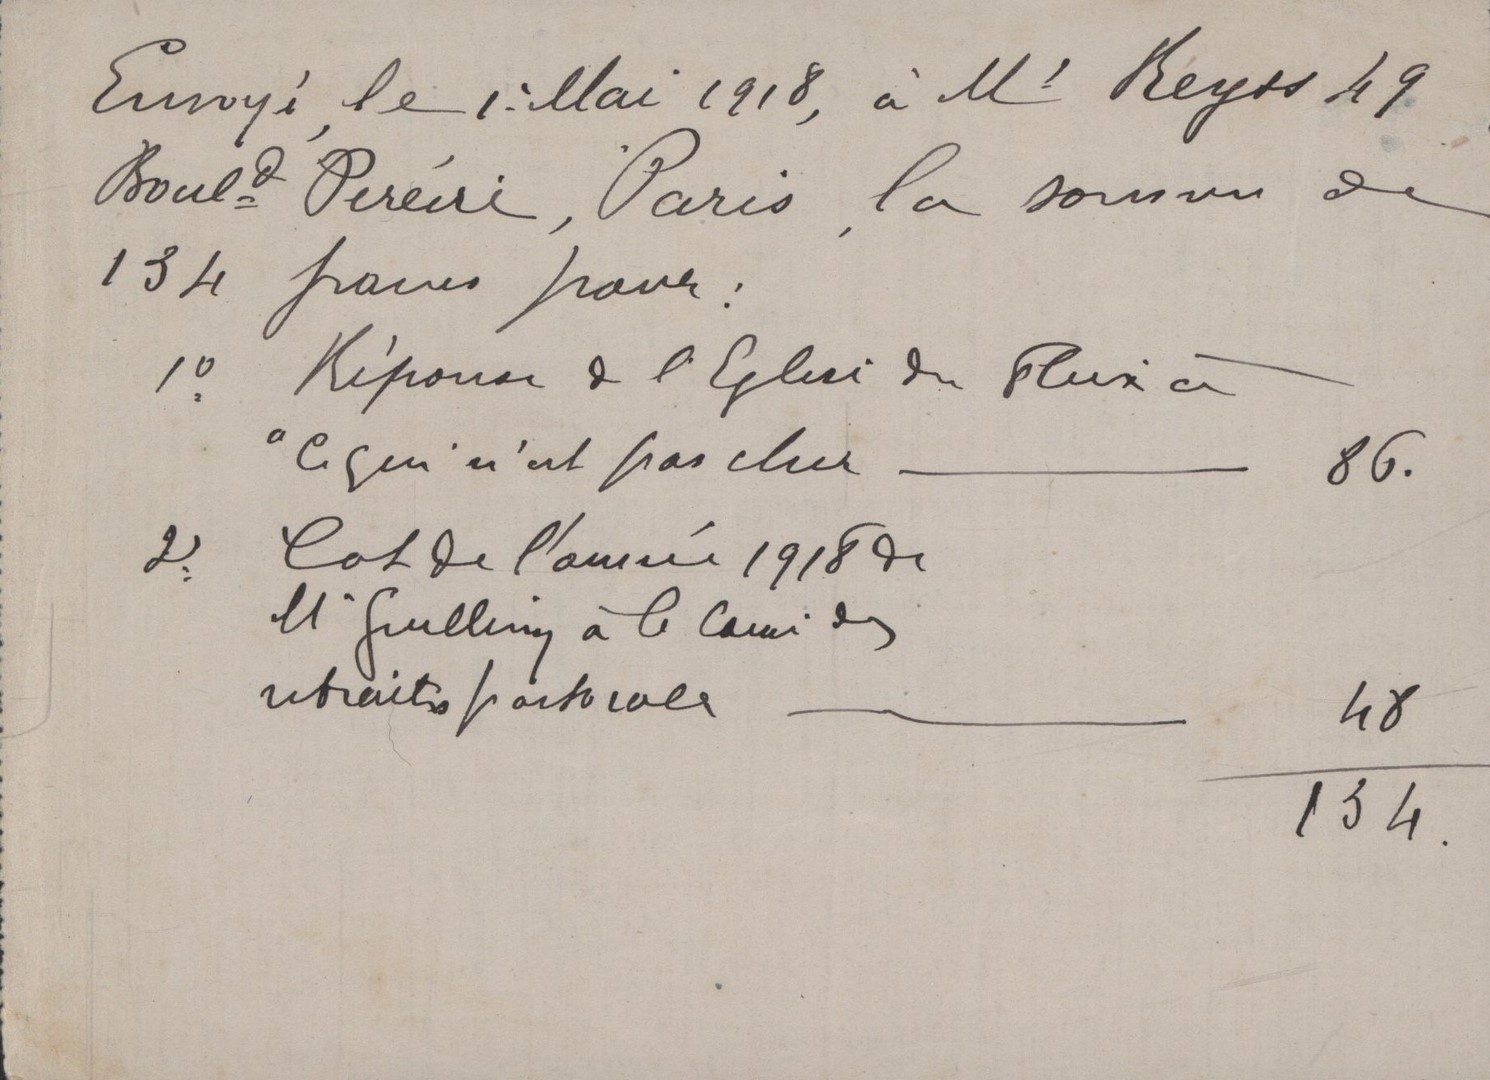 Envoyé, le 1er Mai 1918, à Mr Reyss 49
Bould Péreire, Paris, la somme de
134 francs pour:
1o Réponse de l'Eglise du Fleix à
"Ce qui n'est pas cher 86.
2o Cot de l'année 1918 de
Mr à la Caisse des
retraites pastorales 48
134.